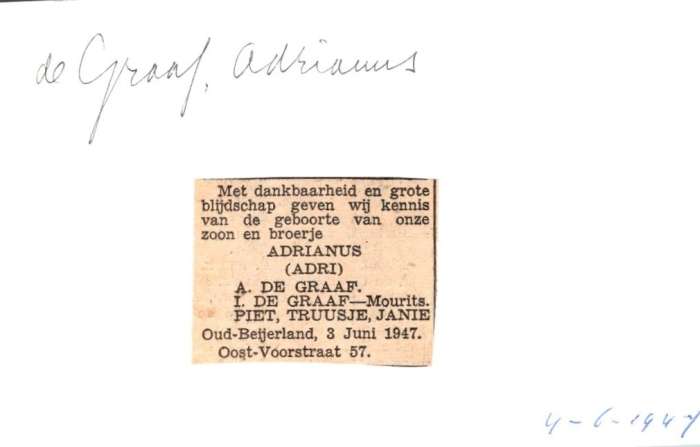 de Graaf, Adrianus
Met dankbaarheid en grote
blijdschap geven wij kennis
van de geboorte van onze
zoon en broerje
ADRIANUS
(ADRI)
A. DE GRAAF.
I. DE GRAAF—Mourits.
PIET, TRUUSJE, JANIE
Oud-Beijerland, 3 Juni 1947.
Oost-Voorstraat 57.
4-6-1947